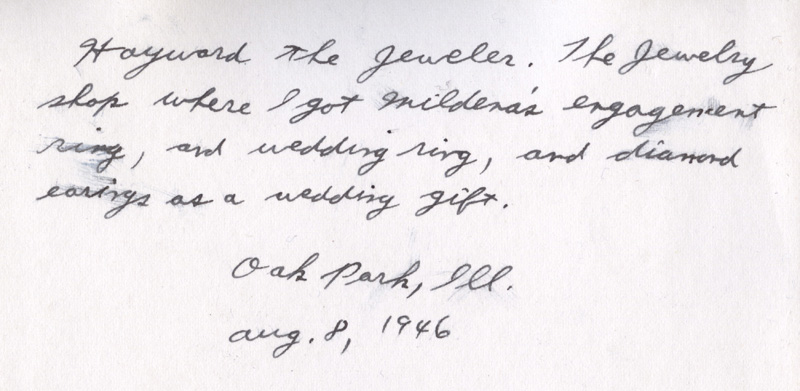 Hayward the Jeweler. The Jewelry
shop where I got Mildena's engagement
ring, and wedding ring, and diamond
earings as a wedding gift.
Oak Park, Ill.
Aug. 8, 1946